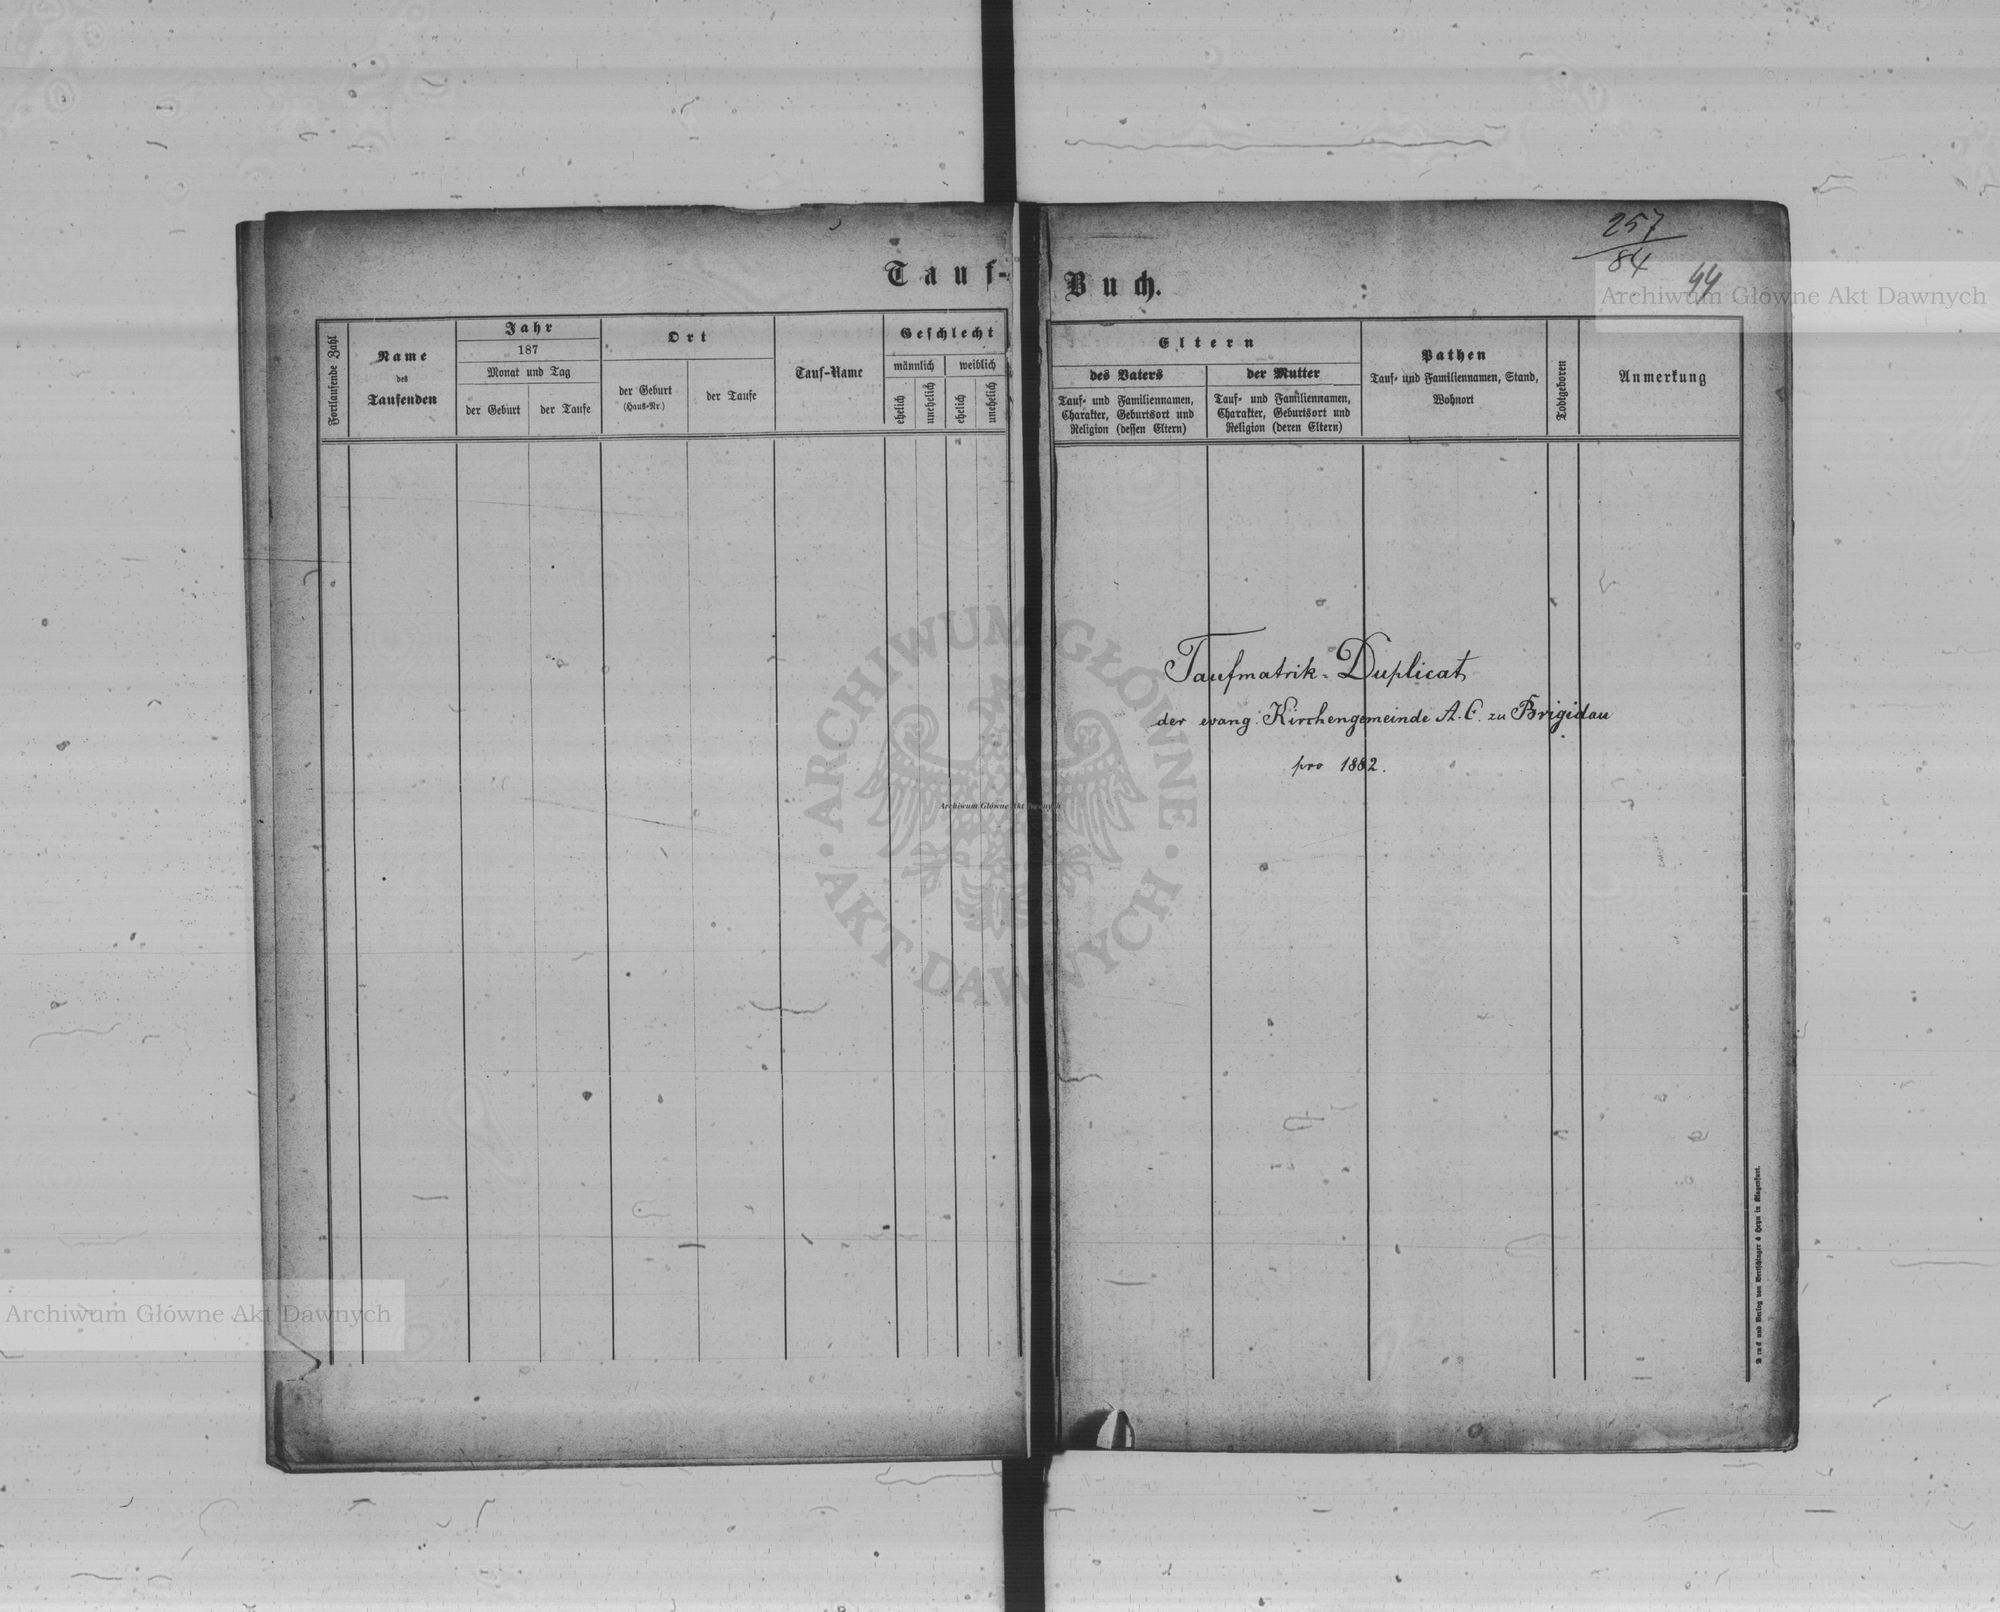 257
84
44
Tauf-Buch.
Fortlaufende Zahl
Name
des
Taufenden
Jahr
187
Monat und Tag
der Geburt
der Taufe
Ort
der Geburt
(Haus-Nr.)
der Taufe
Tauf-Name
Geschlecht
männlich
weiblich
ehelich
unehelich
ehelich
unehelich
Eltern
des Vaters
Tauf- und Familiennamen,
Charakter, Geburtsort und
Religion (dessen Eltern)
der Mutter
Tauf- und Familiennamen,
Charakter, Geburtsort und
Religion (deren Eltern)
Pathen
Tauf- und Familiennamen, Stand,
Wohnort
Todtgeboren
Anmerkung
Taufmatrik-Duplicat
der evang. Kirchengemeinde A. C. zu Brigidau
pro 1882.
Druck und Verlag von Bertschinger & Heyn in Klagenfurt.
Archiwum Główne Akt Dawnych
ARCHIWUM GŁÓWNE
AKT DAWNYCH
Archiwum Główne Akt Dawnych
Archiwum Główne Akt Dawnych